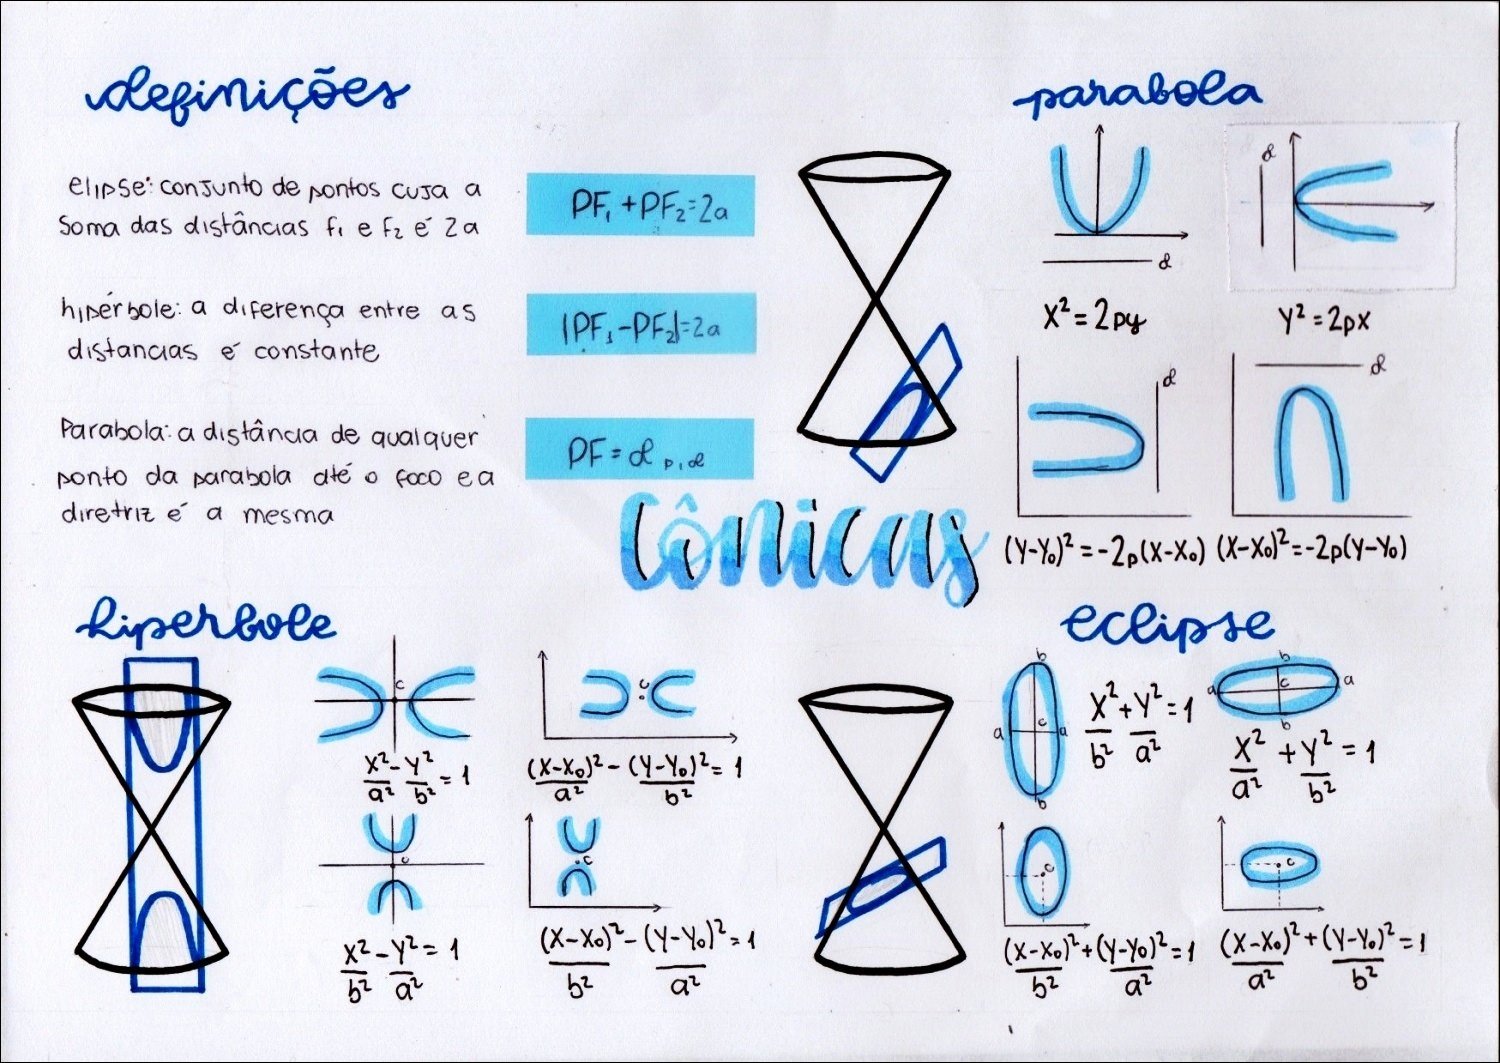 definições
elipse: conjunto de pontos cuja a
soma das distâncias f₁ e f₂ é 2a
PF₁ + PF₂ = 2a
hipérbole: a diferença entre as
distancias é constante
|PF₁ - PF₂| = 2a
Parabola: a distância de qualquer
ponto da parabola até o foco e a
diretriz é a mesma
PF = d P, d
Cônicas
parabola
d
d
X² = 2py
Y² = 2px
d
d
(Y-Y₀)² = -2p(X-X₀)
(X-X₀)² = -2p(Y-Y₀)
hiperbole
c
c
X²/a² - Y²/b² = 1
(X-X₀)²/a² - (Y-Y₀)²/b² = 1
c
c
X²/b² - Y²/a² = 1
(X-X₀)²/b² - (Y-Y₀)²/a² = 1
eclipse
b
a c a
b
X²/b² + Y²/a² = 1
b
a c a
b
X²/a² + Y²/b² = 1
c
c
(X-X₀)²/b² + (Y-Y₀)²/a² = 1
(X-X₀)²/a² + (Y-Y₀)²/b² = 1